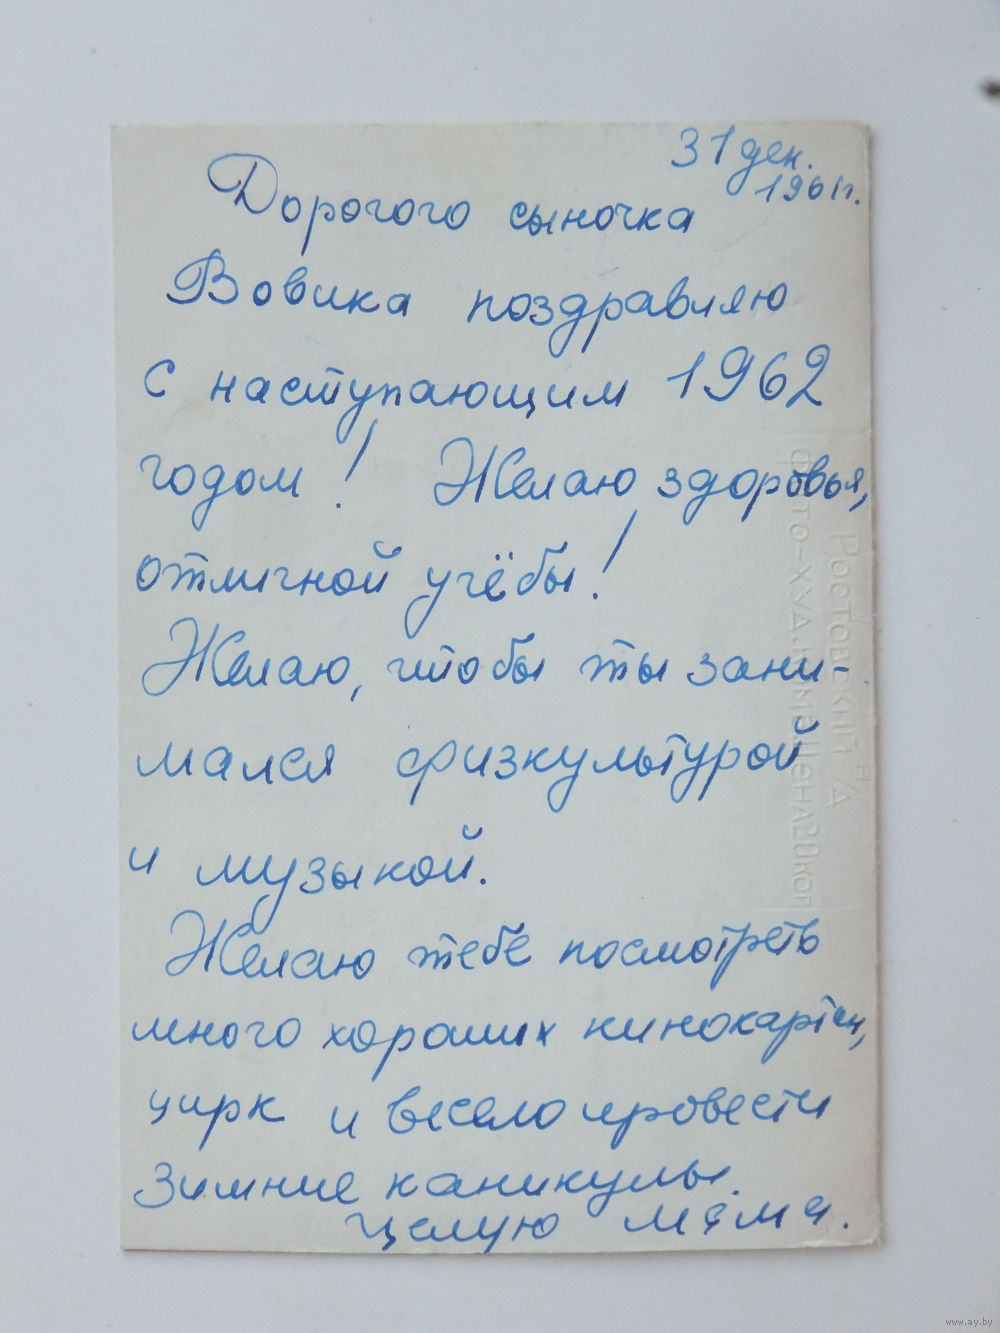 31 дек.
1961г.
Дорогого сыночка
Вовика поздравляю
с наступающим 1962
годом! Желаю здоровья,
отличной учёбы!
Желаю, чтобы ты зани-
мался физкультурой
и музыкой.
Желаю тебе посмотреть
много хороших кинокартин,
цирк и весело провести
зимние каникулы.
Целую мама.
Ростовский н/Д
фото-худ. ком. Цена 20 коп
www.ay.by